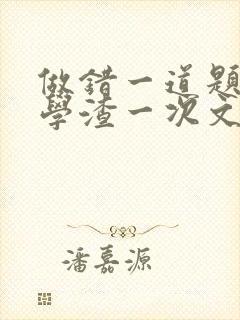 做錯一道題
學渣一次文
潘嘉源